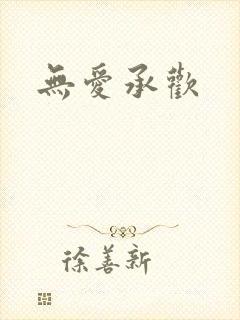 無愛承歡
徐善新